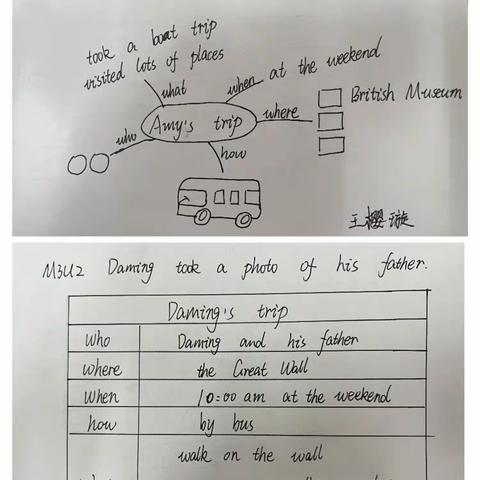 took a boat trip
visited lots of places
what
when
at the weekend
who
Amy's trip
where
British Museum
how
王樱璇
M3U2 Daming took a photo of his father.
Daming's trip
who
Daming and his father
where
the Great Wall
when
10:00 am at the weekend
how
by bus
walk on the wall